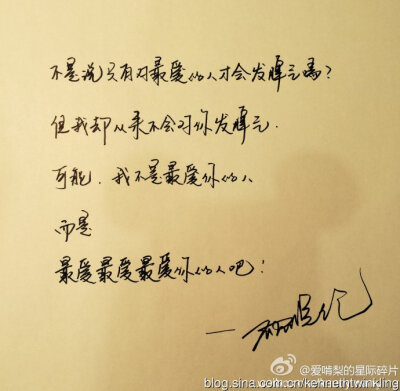 不是说只有对最爱的人才会发脾气吗?
但我却从来不会对你发脾气.
可能.我不是最爱你的人
而是
最爱最爱最爱你的人吧!
@爱啃梨的星际碎片
blog.sina.com.cn/kennethtwinkling